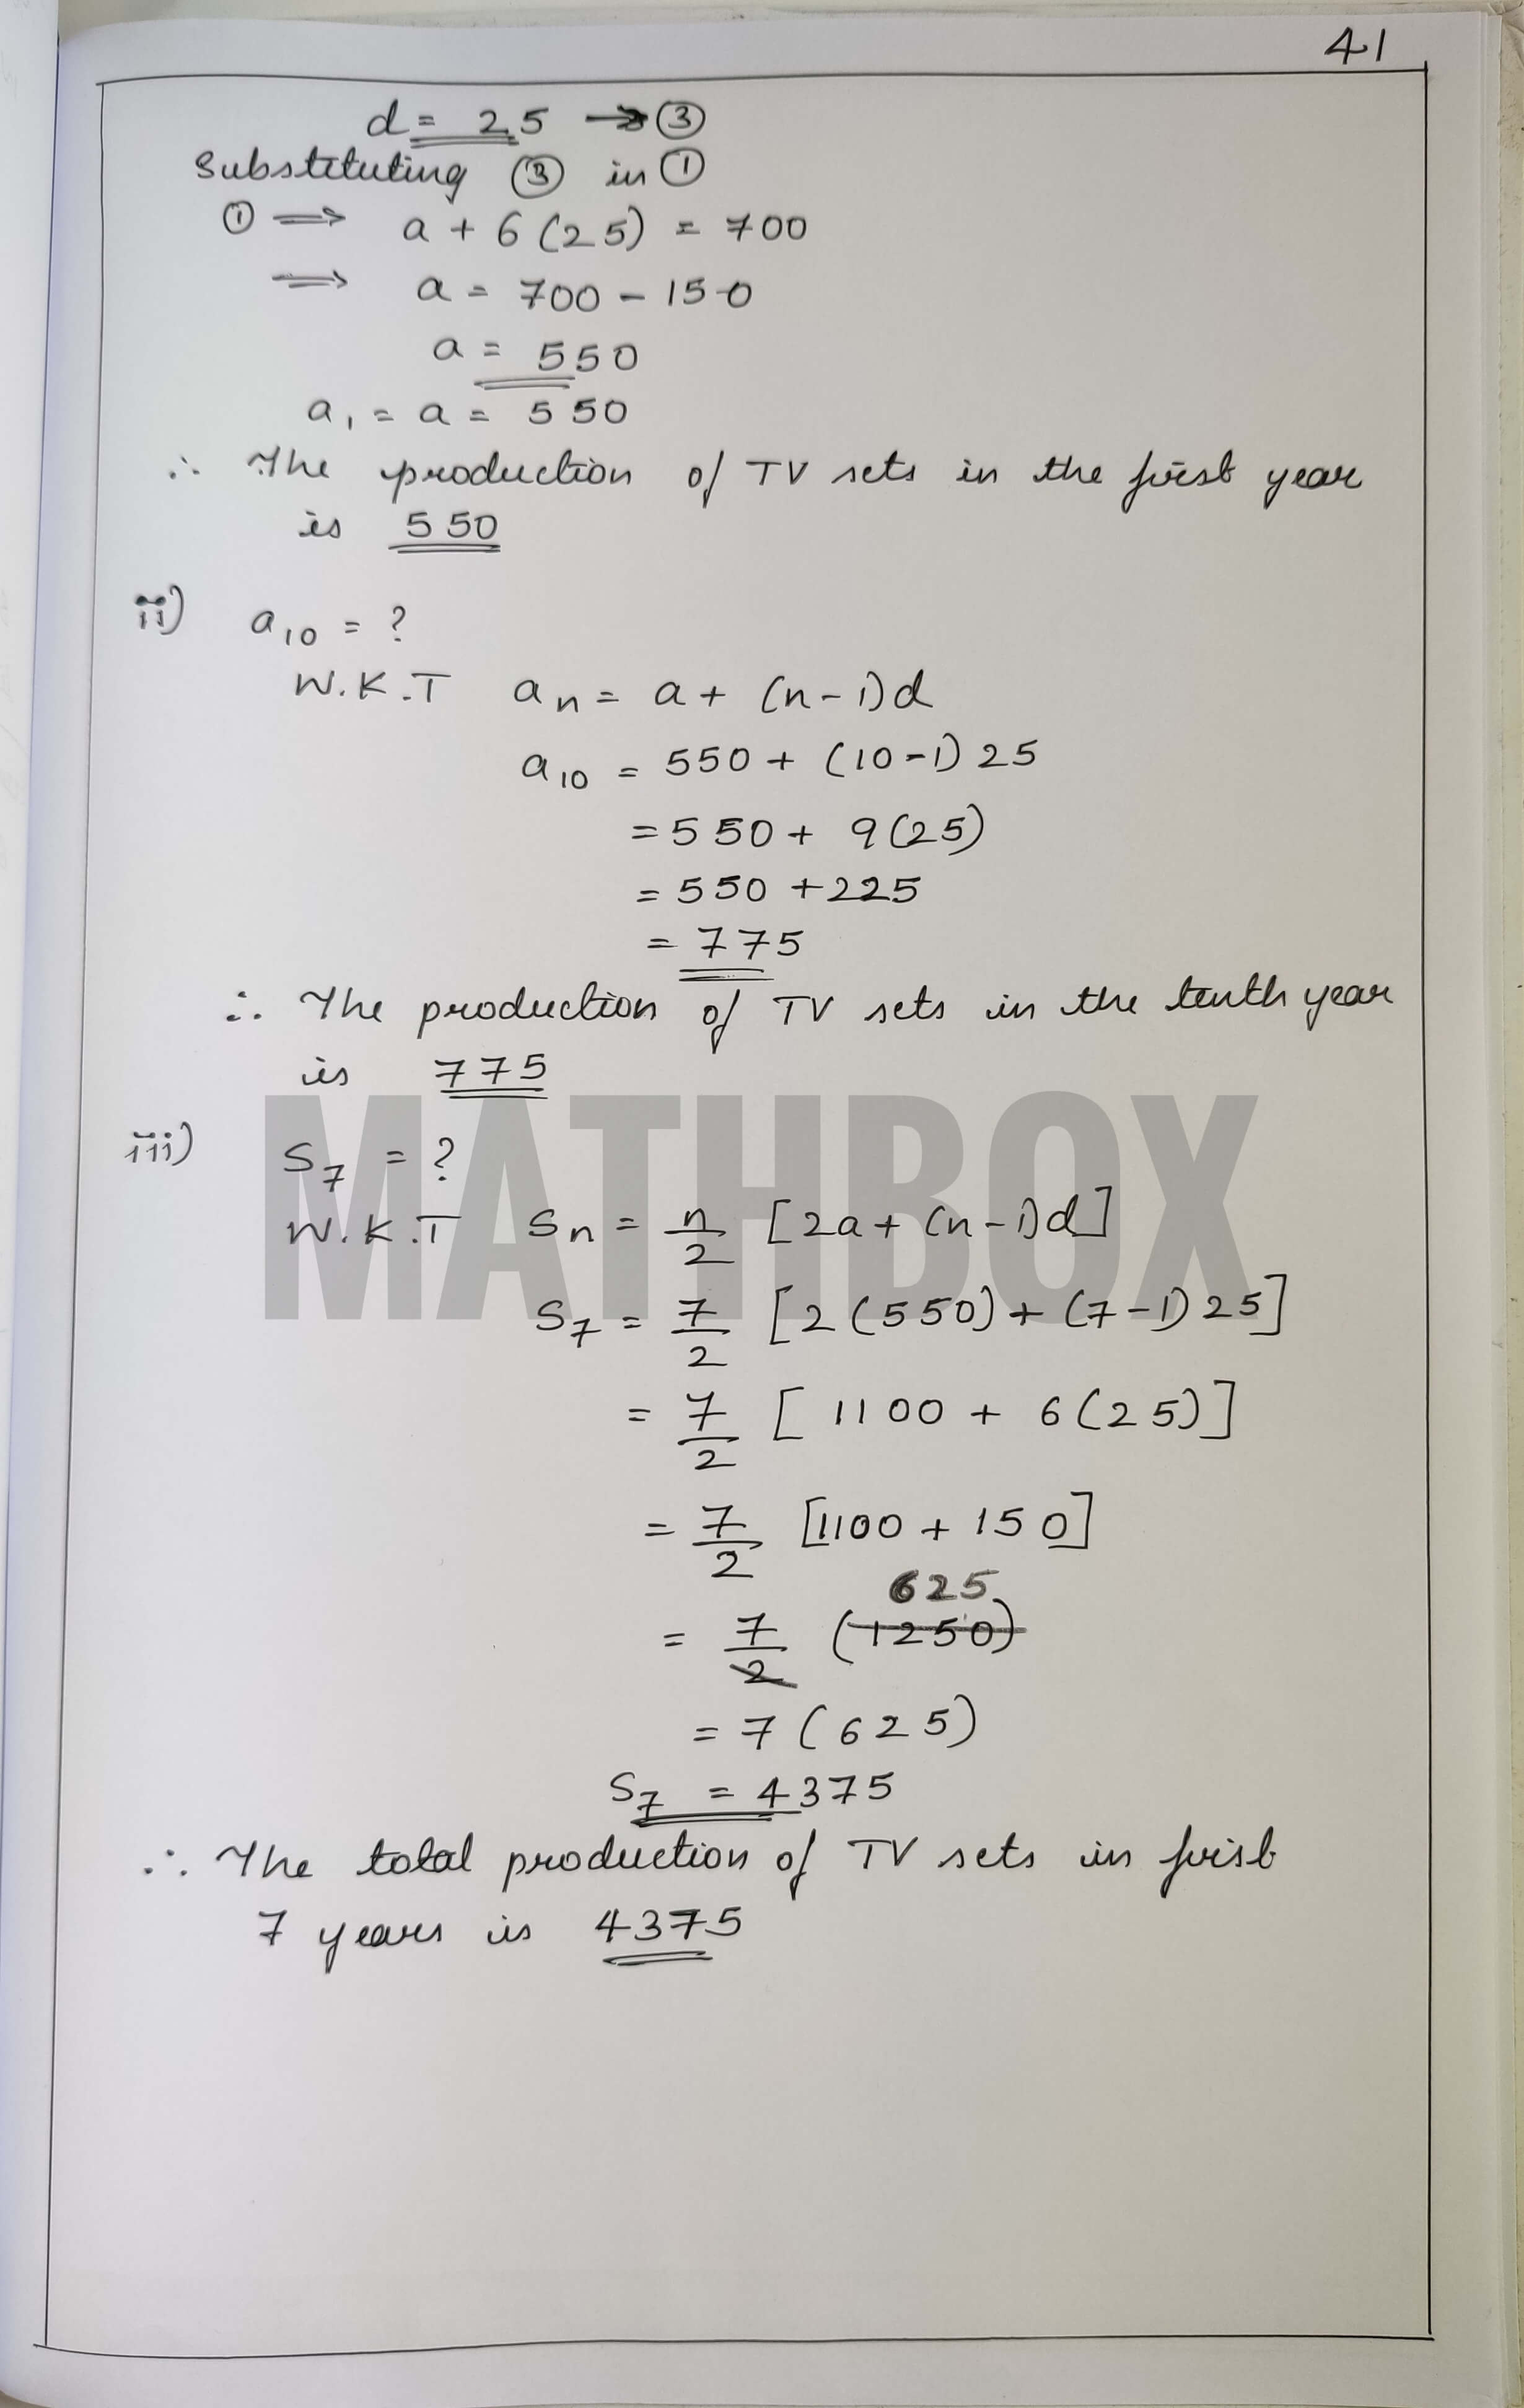 41
d = 25 → ③
Substituting ③ in ①
① ⟹ a + 6 (25) = 700
⟹ a = 700 - 150
a = 550
a₁ = a = 550
∴ The production of TV sets in the first year
is 550
ii) a₁₀ = ?
W.K.T aₙ = a + (n-1)d
a₁₀ = 550 + (10-1) 25
= 550 + 9(25)
= 550 + 225
= 775
∴ The production of TV sets in the tenth year
is 775
MATHBOX
iii) S₇ = ?
W.K.T Sₙ = n/2 [2a + (n-1)d]
S₇ = 7/2 [2(550) + (7-1) 25]
= 7/2 [1100 + 6(25)]
= 7/2 [1100 + 150]
625
= 7/2 (1250)
= 7 (625)
S₇ = 4375
∴ The total production of TV sets in first
7 years is 4375